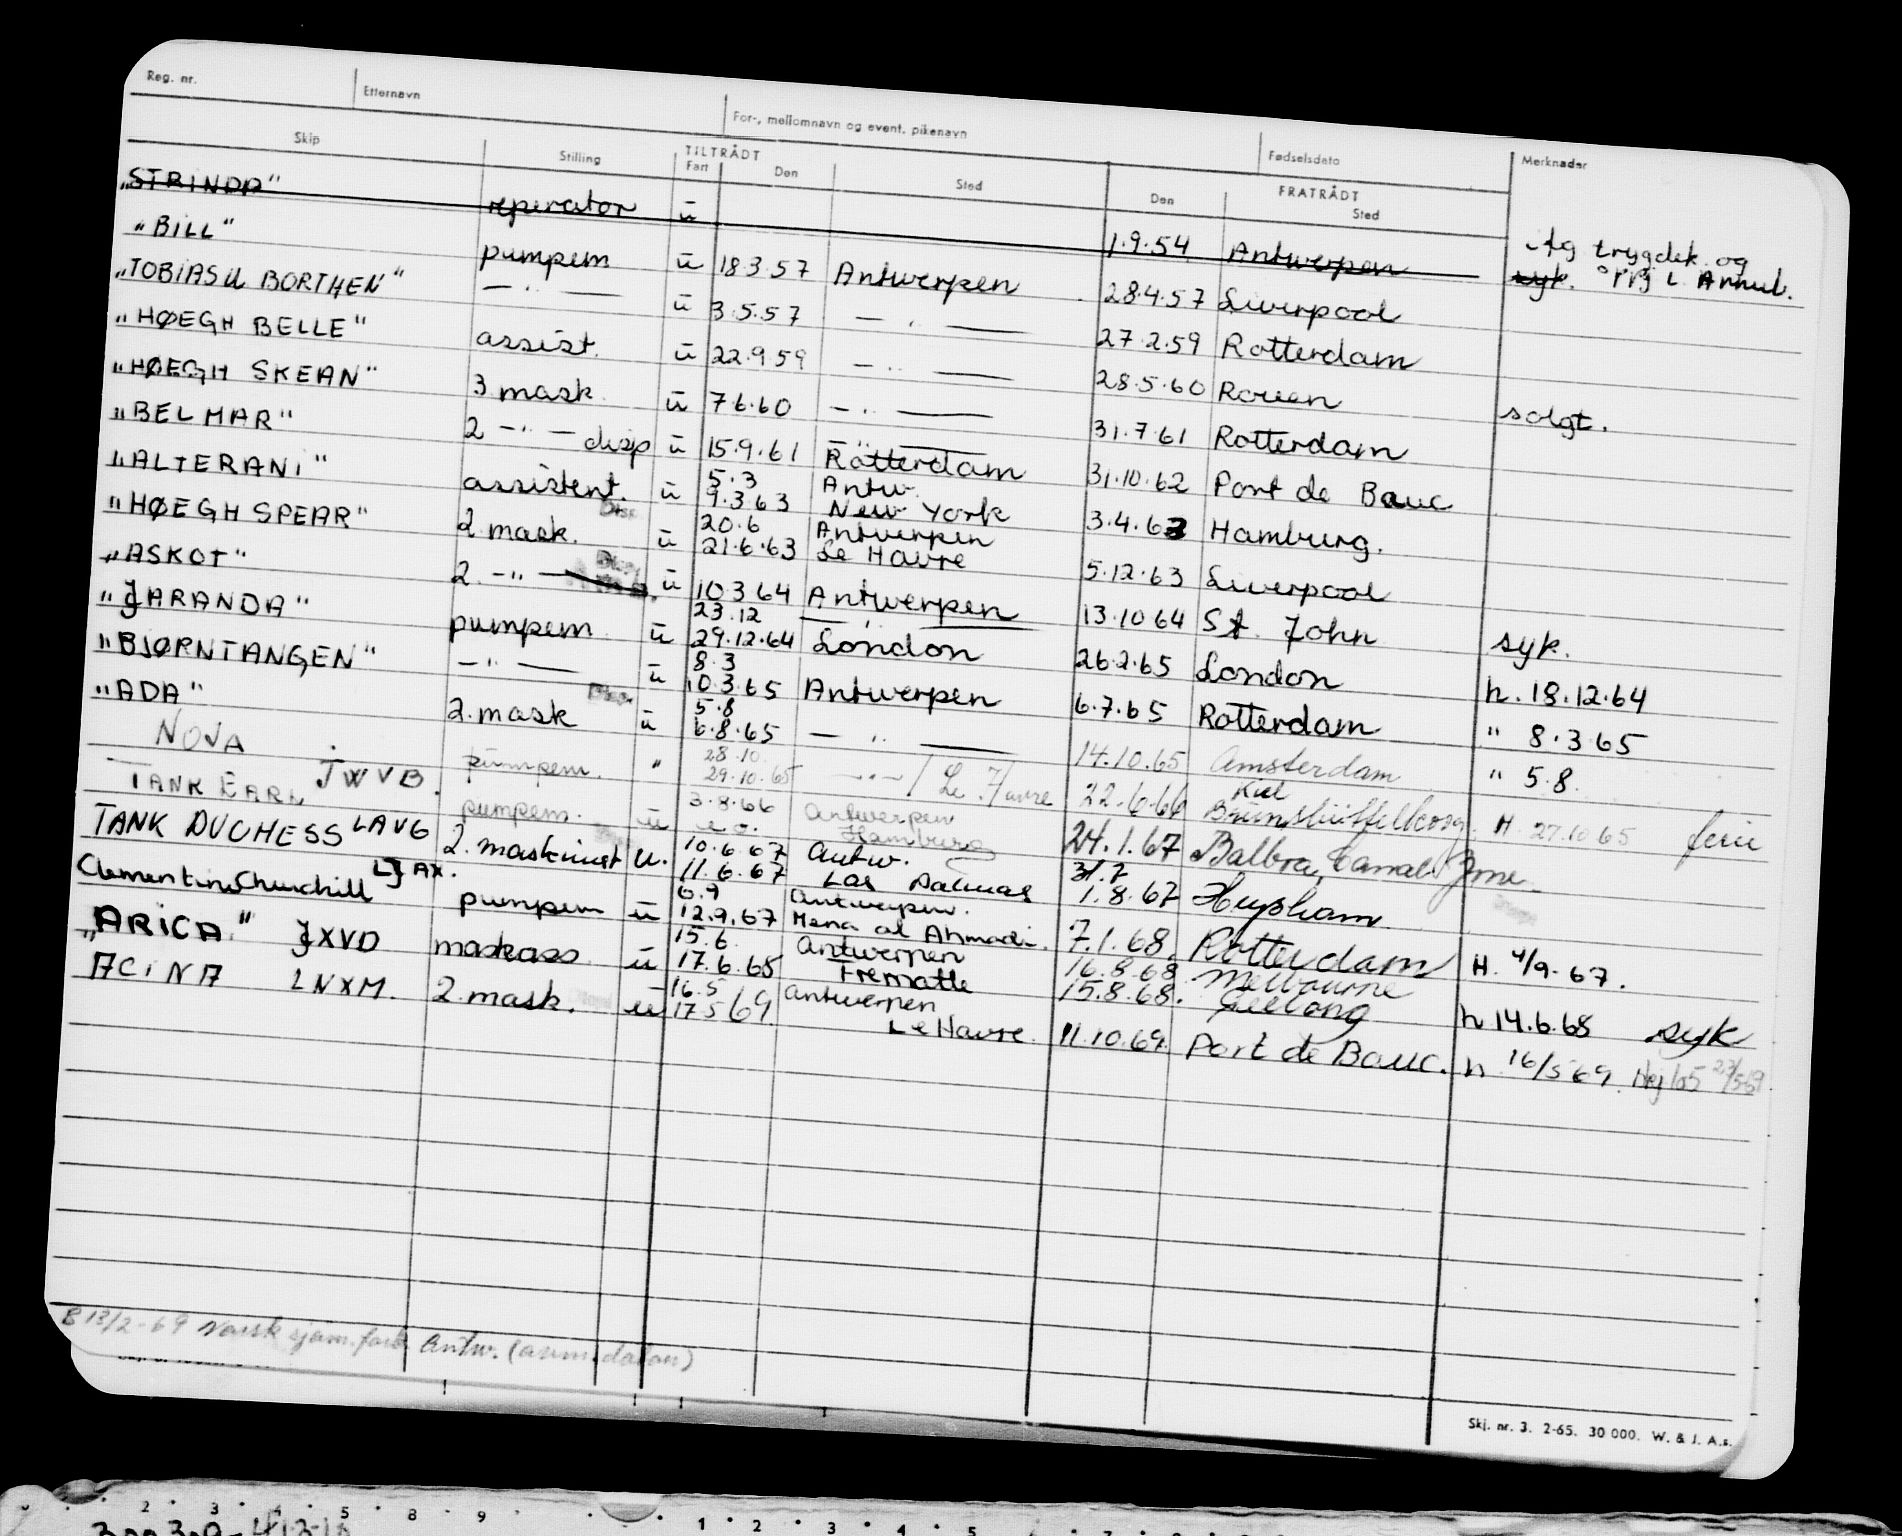 Reg. nr. Etternavn For-, mellomnavn og event. pikenavn Fødselsdato Merknader
Skip Stilling TILTRÅDT Fart Den Sted FRATRÅDT Den Sted
"STRINDA" reperator ū 1.9.54 Antwerpen Ag trygdek. og syk. L Annul.
"BILL" pumpem ū 18.3.57 Antwerpen 28.4.57 Liverpool
"TOBIAS U BORTHEN" —"— ū 3.5.57 —"— 27.2.59 Rotterdam
"HØEGH BELLE" assist. ū 22.9.59 —"— 28.5.60 Rouen solgt.
"HØEGH SKEAN" 3 mask. ū 7.6.60 —"— 31.7.61 Rotterdam
"BELMAR" 2 —"— disp ū 15.9.61 Rotterdam 31.10.62 Port de Bouc
"ALTERANI" assistent. ū 5.3 Antw. 9.3.63 New York 3.4.63 Hamburg.
"HØEGH SPEAR" 2 mask. Disp. ū 20.6 Antwerpen 21.6.63 Le Havre 5.12.63 Liverpool
"ASKOT" 2. —"— Disp. ū 10.3.64 Antwerpen 13.10.64 St. John syk.
"JARANDA" pumpem ū 23.12 —"— 29.12.64 London 26.2.65 London h. 18.12.64
"BJØRNTANGEN" —"— ū 8.3 10.3.65 Antwerpen 6.7.65 Rotterdam " 8.3.65
"ADA" 2. mask Disp. ū 5.8 6.8.65 —"— 14.10.65 Amsterdam " 5.8.
NOVA JWVB. pumpem. " 28.10. 29.10.65 —"— / Le Havre 22.6.66 Kiel Brunsbüttelkoog H. 27.10.65 ferie
TANK EARL pumpem. u 3.8.66 Antwerpen Hamburg 24.1.67 Balboa, Canal Zone
TANK DUCHESS LAVG 2. maskinist u. 10.6.67 Antw. 11.6.67 Las Palmas 31.7 1.8.67 Heysham
Clementine Churchill LJAX. pumpem ū 6.9 Antwerpen. 12.9.67 Mena al Ahmadi. 7.1.68. Rotterdam H. 4/9-67.
"ARICA" JXVD maskass. ū 15.6. Antwerpen 17.6.68 Frematle 16.8.68 Melbourne 15.8.68. Geelong h 14.6.68 syk
ACINA LNXM. 2. mask. u 16.5 Antwerpen 17.5 69. Le Havre 11.10.69. Port de Bouc. h. 16/5 69.
B 13/2-69 Norsk sjøm.forb. Antw. (anm. datoen)
Skj. nr. 3. 2-65. 30 000. W. & J. A.s.
2 3 4 5 8 9 1 2 3 4 5